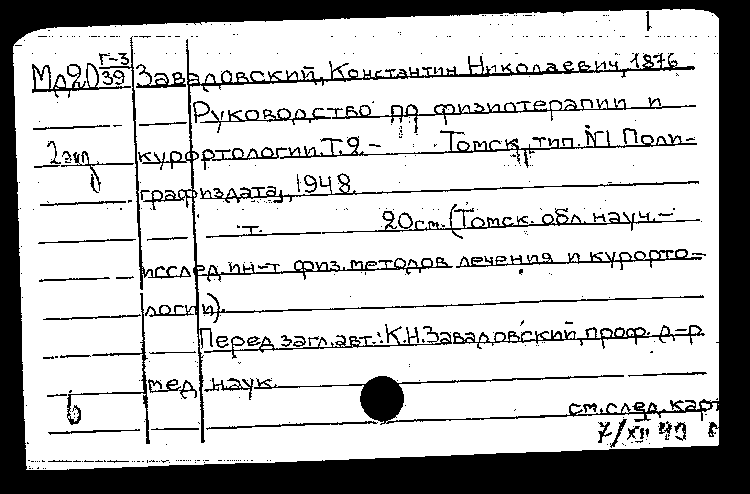 Г-3
Мд20 39 Завадовский, Константин Николаевич, 1876
Руководство по физиотерапии и
2 экз. курортологии. Т.2.- Томск, тип. №1 Поли-
графиздата, 1948.
т. 20 см. (Томск. обл. науч.-
исслед. ин-т физ. методов лечения и курорто-
логии).
Перед загл. авт.: К.Н. Завадовский, проф. д-р
мед. наук.
б
см. след. карт
7/XII 49